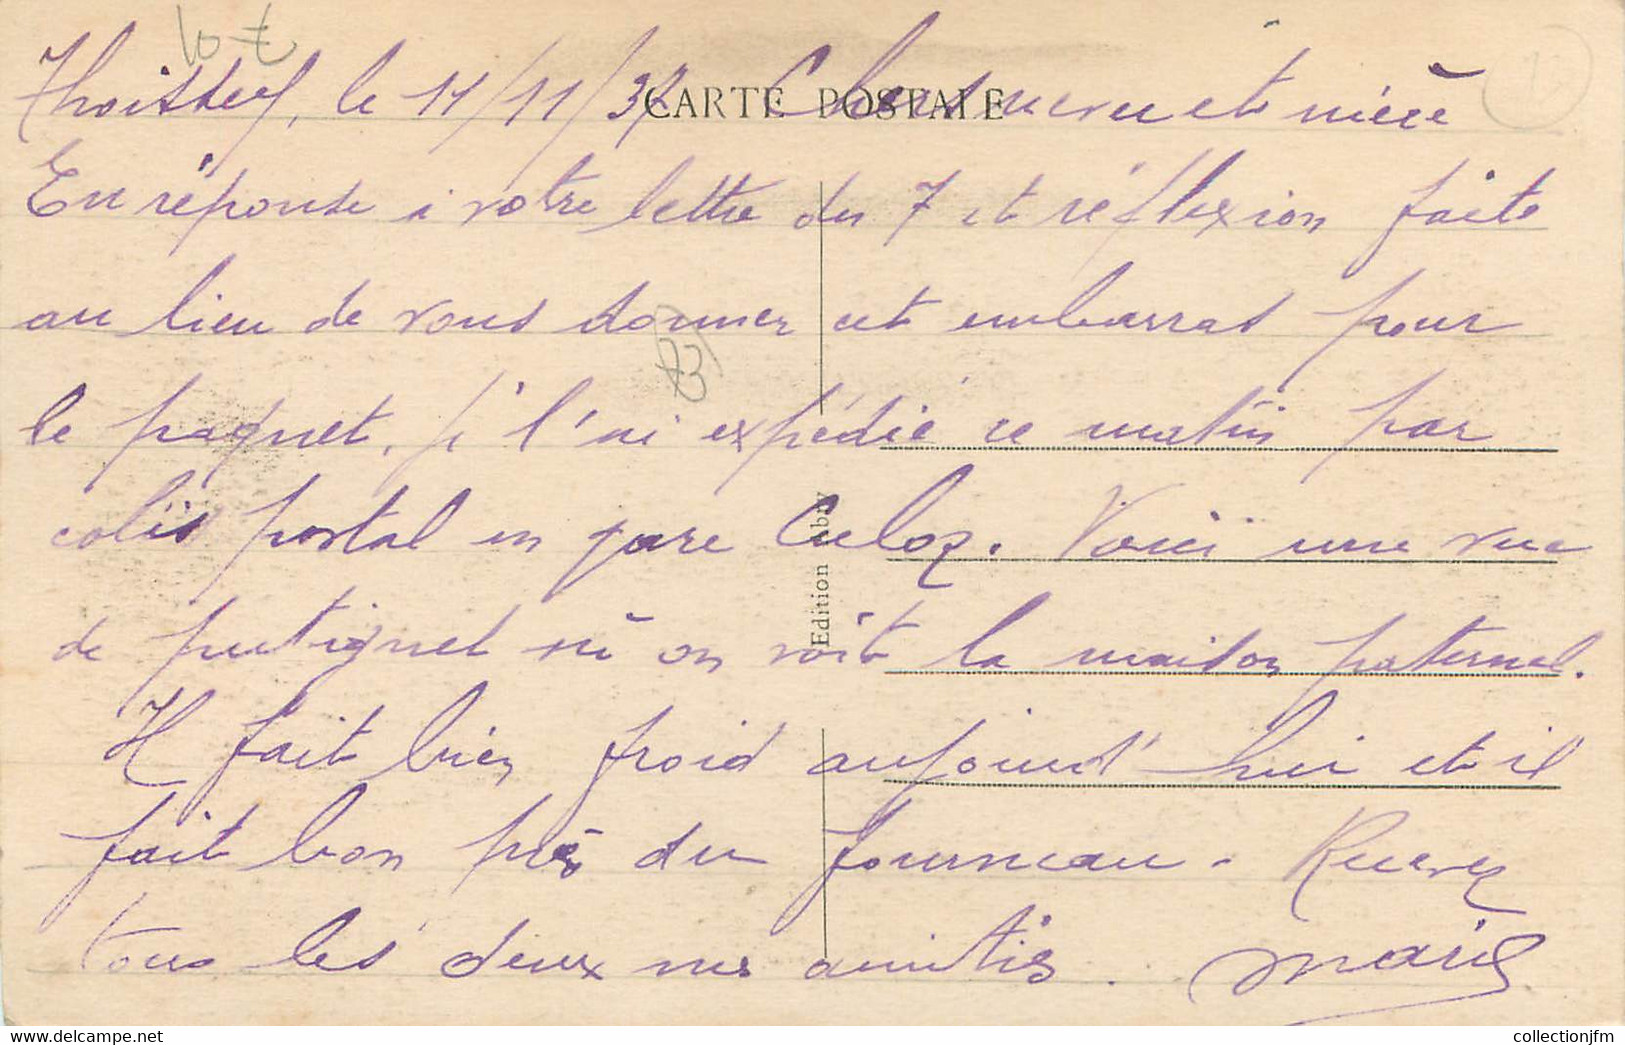 Thoissey, le 11/11/37 CARTE POSTALE Chers neveu et nièce
En réponse à votre lettre du 7 et réflexion faite
au lieu de vous donner cet embarras pour
le paquet, j'l'ai expédié ce matin par
colis postal en gare Culoz. Voici une vue
de putignet où on voit la maison paternel.
Il fait bien froid aujourd'hui et il
fait bon près du fourneau. Recevez
tous les deux mes amitiés. Marie
Edition
collectionjfm